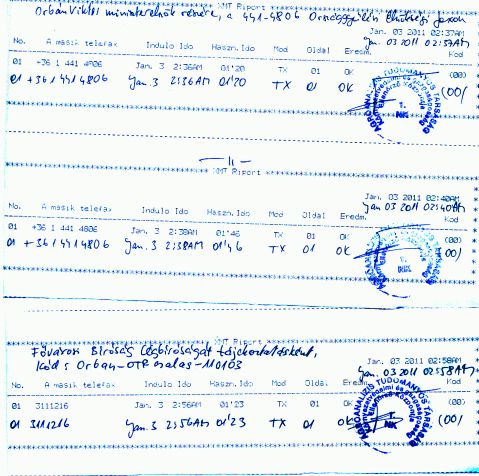 Orbán Viktor miniszterelnök részére, a 441-4806 Országgyűlési Elnökségi faxon
XMT Riport
Jan. 03 2011 02:37AM
Jan 03 2011 02:37AM
No. A masik telefax Indulo Ido Haszn.Ido Mod Oldal Eredm. Kod
01 +36 1 441 4806 Jan. 3 2:36AM 01'20 TX 01 OK (00)
01 +36 1 441 4806 Jan. 3 2:36AM 01'20 TX 01 OK (00)
AGROANALÍZIS TUDOMÁNYOS TÁRSASÁG
1.
— 11 —
XMT Riport
Jan. 03 2011 02:40AM
Jan 03 2011 02:40AM
No. A masik telefax Indulo Ido Haszn.Ido Mod Oldal Eredm. Kod
01 +36 1 441 4806 Jan. 3 2:38AM 01'46 TX 01 OK (00)
01 +36 1 441 4806 Jan. 3 2:38AM 01'46 TX 01 OK (00)
1.
XMT Riport
Fővárosi Bíróság Cégbíróságát tájékoztatásként,
Kód: Orban-OTPcsalas-110103
Jan. 03 2011 02:58AM
Jan. 03 2011 02:58AM
No. A masik telefax Indulo Ido Haszn.Ido Mod Oldal Eredm. Kod
01 3111216 Jan. 3 2:56AM 01'23 TX 01 OK (00)
01 3111216 Jan. 3 2:56AM 01'23 TX 01 OK (00)
AGROANALÍZIS TUDOMÁNYOS TÁRSASÁG